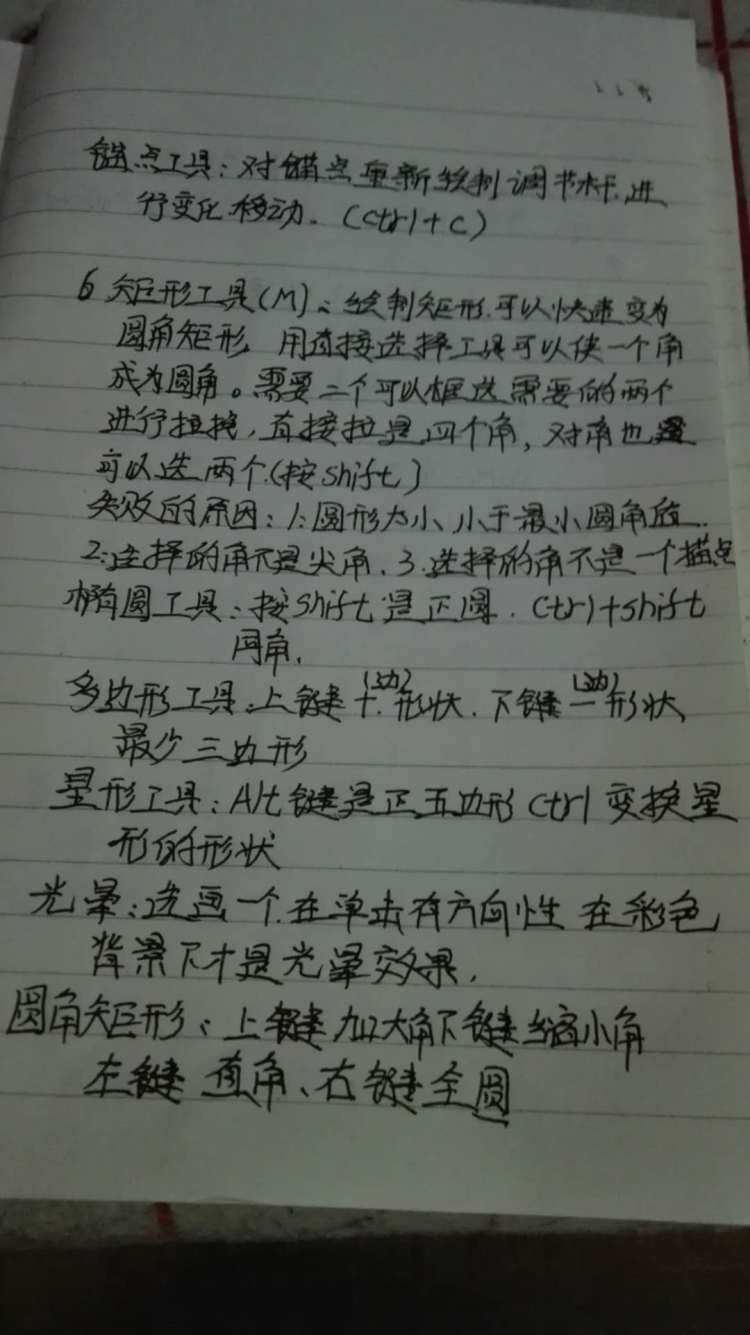 锚点工具:对锚点重新绘制调节杆,进
行变化移动.(ctrl+C)
6 矩形工具(M):绘制矩形.可以快速变为
圆角矩形 用直接选择工具可以使一个角
成为圆角。需要二个可以框选需要的两个
进行拉拽,直接拉是四个角,对角也是
可以选两个.(按shift)
失败的原因:1:圆形大小,小于最小圆角值.
2:选择的角不是尖角、3.选择的角不是一个描点
椭圆工具:按shift是正圆.Ctrl+shift
同角.
多边形工具:上键+(边)形状.下键一(边)形状,
最少三边形
星形工具:Alt键是正五边形Ctrl变换星
形的形状
光晕:选画一个.在单击有方向性 在彩色
背景下才是光晕效果.
圆角矩形:上键加大角下键缩小角
左键 直角、右键全圆